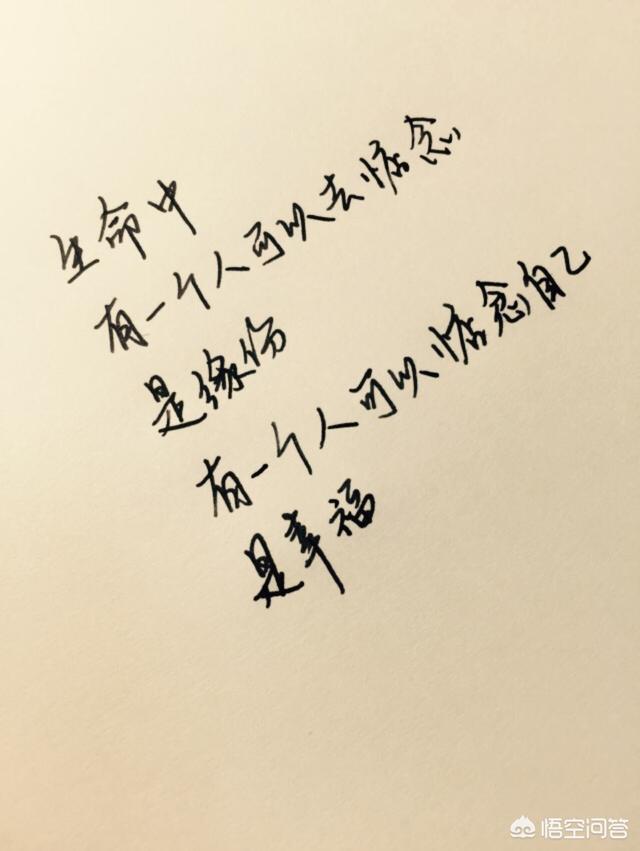 生命中
有一个人可以去惦念
是缘份
有一个人可以惦念自己
是幸福
悟空问答